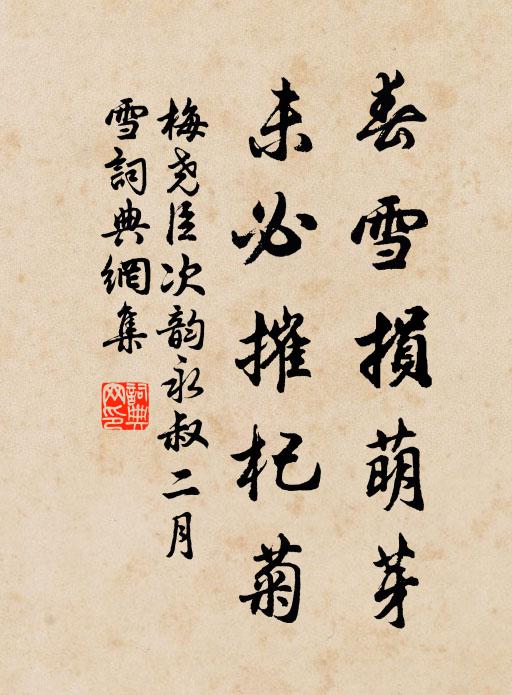 春雪損萌芽
未必摧杞菊
梅尧臣次韵永叔二月
雪詞典網集
詞典
网印